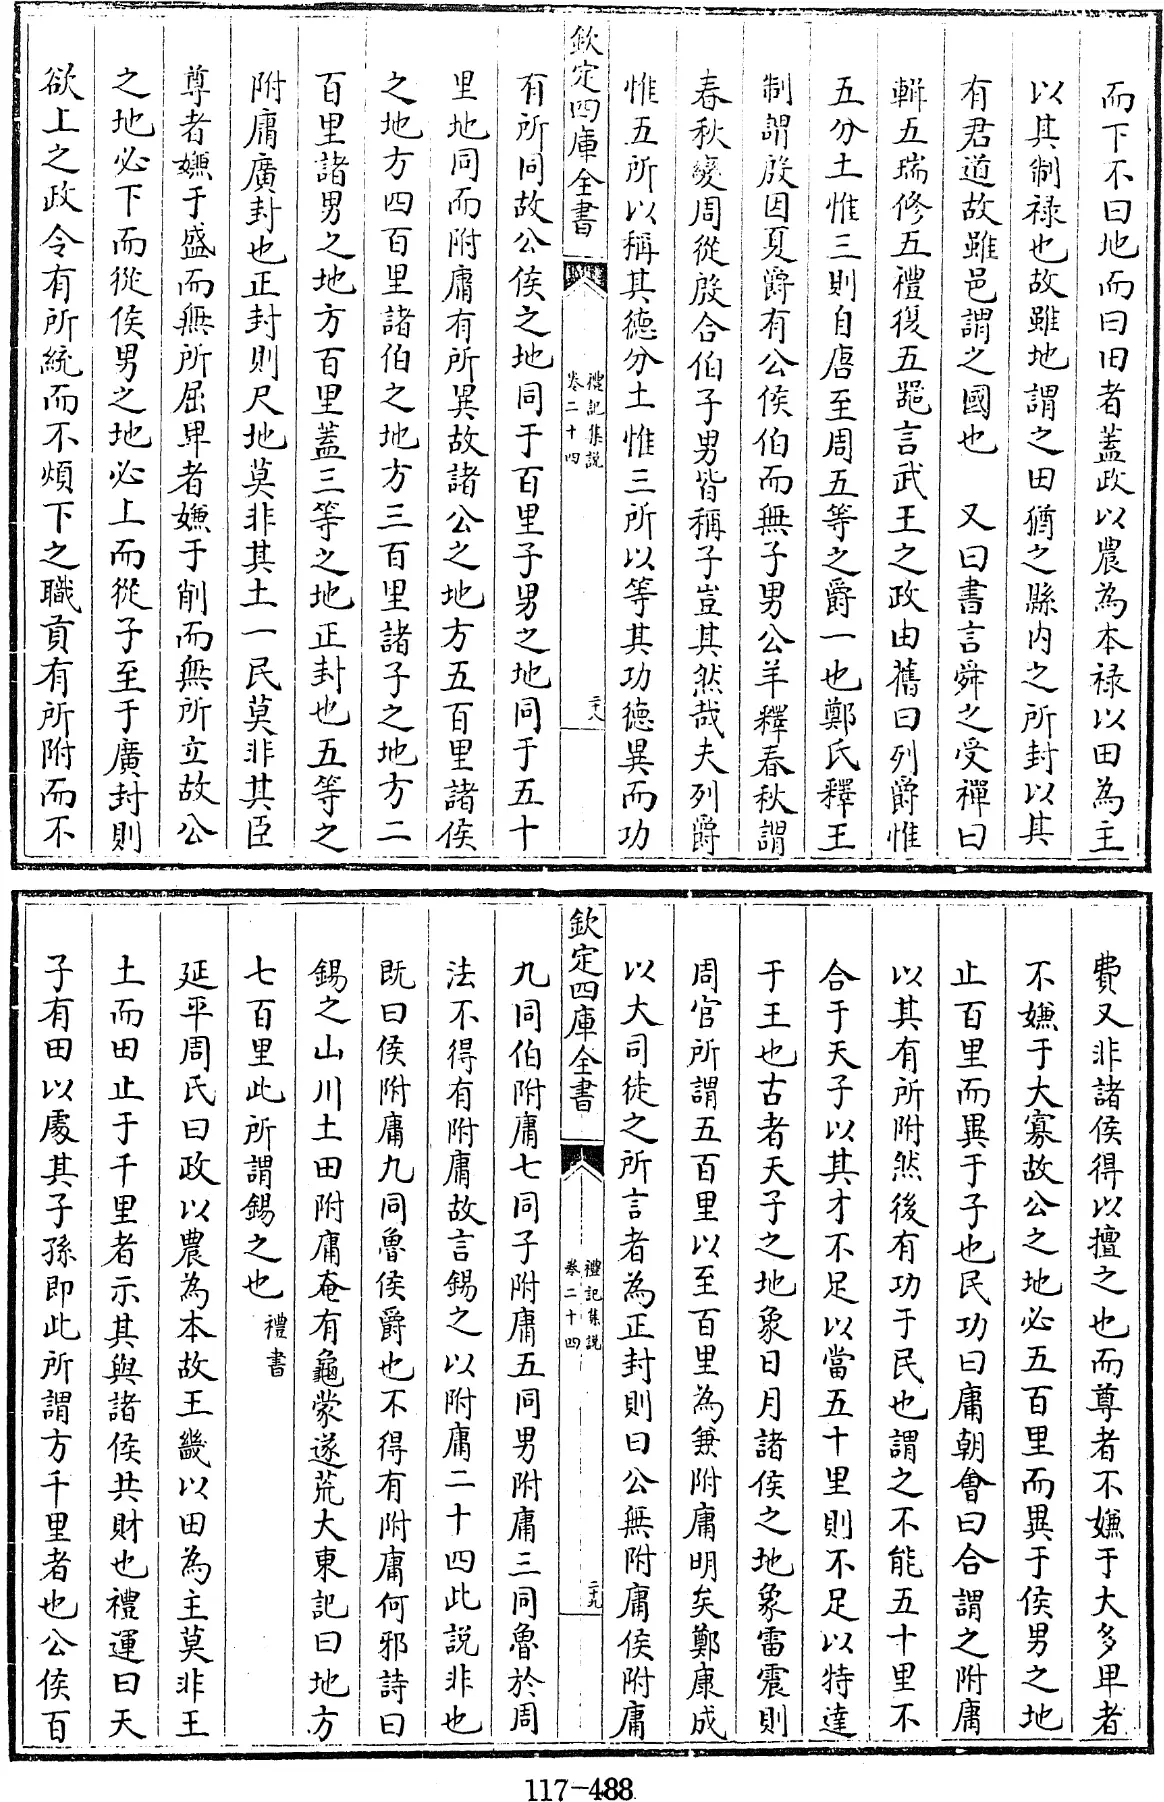 而下不曰地而曰田者蓋政以農為本禄以田為主
以其制禄也故雖地謂之田猶之縣内之所封以其
有君道故雖邑謂之國也　又曰書言舜之受禪曰
輯五瑞修五禮復五器言武王之政由舊曰列爵惟
五分土惟三則自唐至周五等之爵一也鄭氏釋王
制謂殷因夏爵有公侯伯而無子男公羊釋春秋謂
春秋變周從殷合伯子男皆稱子豈其然哉夫列爵
惟五所以稱其德分土惟三所以等其功德異而功
欽定四庫全書
禮記集説
卷二十四
二十八
有所同故公侯之地同于百里子男之地同于五十
里地同而附庸有所異故諸公之地方五百里諸侯
之地方四百里諸伯之地方三百里諸子之地方二
百里諸男之地方百里蓋三等之地正封也五等之
附庸廣封也正封則尺地莫非其土一民莫非其臣
尊者嫌于盛而無所屈卑者嫌于削而無所立故公
之地必下而從侯男之地必上而從子至于廣封則
欲上之政令有所統而不煩下之職貢有所附而不
費又非諸侯得以擅之也而尊者不嫌于大多卑者
不嫌于大寡故公之地必五百里而異于侯男之地
止百里而異于子也民功曰庸朝會曰合謂之附庸
以其有所附然後有功于民也謂之不能五十里不
合于天子以其才不足以當五十里則不足以特達
于王也古者天子之地象日月諸侯之地象雷震則
周官所謂五百里以至百里為兼附庸明矣鄭康成
以大司徒之所言者為正封則曰公無附庸侯附庸
欽定四庫全書
禮記集説
卷二十四
二十九
九同伯附庸七同子附庸五同男附庸三同魯於周
法不得有附庸故言錫之以附庸二十四此説非也
既曰侯附庸九同魯侯爵也不得有附庸何邪詩曰
錫之山川土田附庸奄有龜蒙遂荒大東記曰地方
七百里此所謂錫之也　禮書
延平周氏曰政以農為本故王畿以田為主莫非王
土而田止于千里者示其與諸侯共財也禮運曰天
子有田以處其子孫即此所謂方千里者也公侯百
117-488